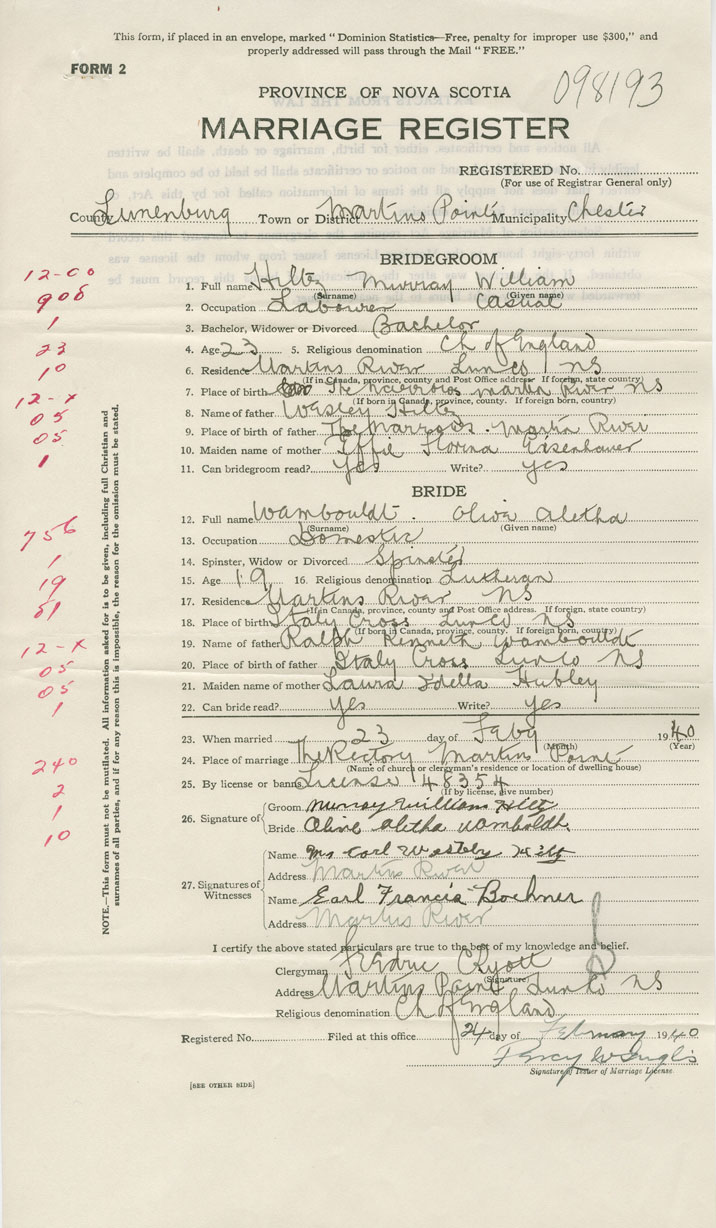 This form, if placed in an envelope, marked "Dominion Statistics—Free, penalty for improper use $300," and
properly addressed will pass through the Mail "FREE."
FORM 2
PROVINCE OF NOVA SCOTIA
098193
MARRIAGE REGISTER
REGISTERED No.
(For use of Registrar General only)
County Lunenburg Town or District Martins Point Municipality Chester
BRIDEGROOM
12-00
1. Full name Hiltz Murray William
(Surname) (Given name)
908
2. Occupation Labourer Casual
1
3. Bachelor, Widower or Divorced Bachelor
23
4. Age 23 5. Religious denomination Ch of England
10
6. Residence Martins River Lun Co NS
(If in Canada, province, county and Post Office address. If foreign, state country)
12-x
7. Place of birth The Narrows Martin River NS
(If born in Canada, province, county. If foreign born, country)
05
8. Name of father Wesley Hiltz
05
9. Place of birth of father The Narrows. Martin River
10. Maiden name of mother Effie Florina Eisenhauer
1
11. Can bridegroom read? Yes Write? yes
BRIDE
12. Full name Wambouldt. Olive Aletha
(Surname) (Given name)
756
13. Occupation Domestic
1
14. Spinster, Widow or Divorced Spinster
19
15. Age 19 16. Religious denomination Lutheran
51
17. Residence Martins River NS
(If in Canada, province, county and Post Office address. If foreign, state country)
18. Place of birth Italy Cross Lun Co NS
(If born in Canada, province, county. If foreign born, country)
12-x
19. Name of father Ralph Kenneth Wambouldt
05
20. Place of birth of father Italy Cross Lun Co NS
05
21. Maiden name of mother Laura Idella Hubley
1
22. Can bride read? yes Write? yes
23. When married 23 day of Feby 1940
(Month) (Year)
240
24. Place of marriage The Rectory Martins Point
(Name of church or clergyman's residence or location of dwelling house)
2
25. By license or banns License 48354
(If by license, give number)
1
26. Signature of Groom Murray William Hiltz
10
Bride Olive Aletha Wamboldt.
27. Signatures of Witnesses
Name Mrs Carl Westley Hiltz
Address Martins River
Name Earl Francis Boehner
Address Martins River
I certify the above stated particulars are true to the best of my knowledge and belief.
Clergyman Fredric
(Signature)
Address Martins Point Lun Co NS
Religious denomination Ch of England
Registered No. Filed at this office 24 day of February 1940
Percy W Inglis
Signature of Issuer of Marriage License
[SEE OTHER SIDE]
NOTE.—This form must not be mutilated. All information asked for is to be given, including full Christian and
surnames of all parties, and if for any reason this is impossible, the reason for the omission must be stated.